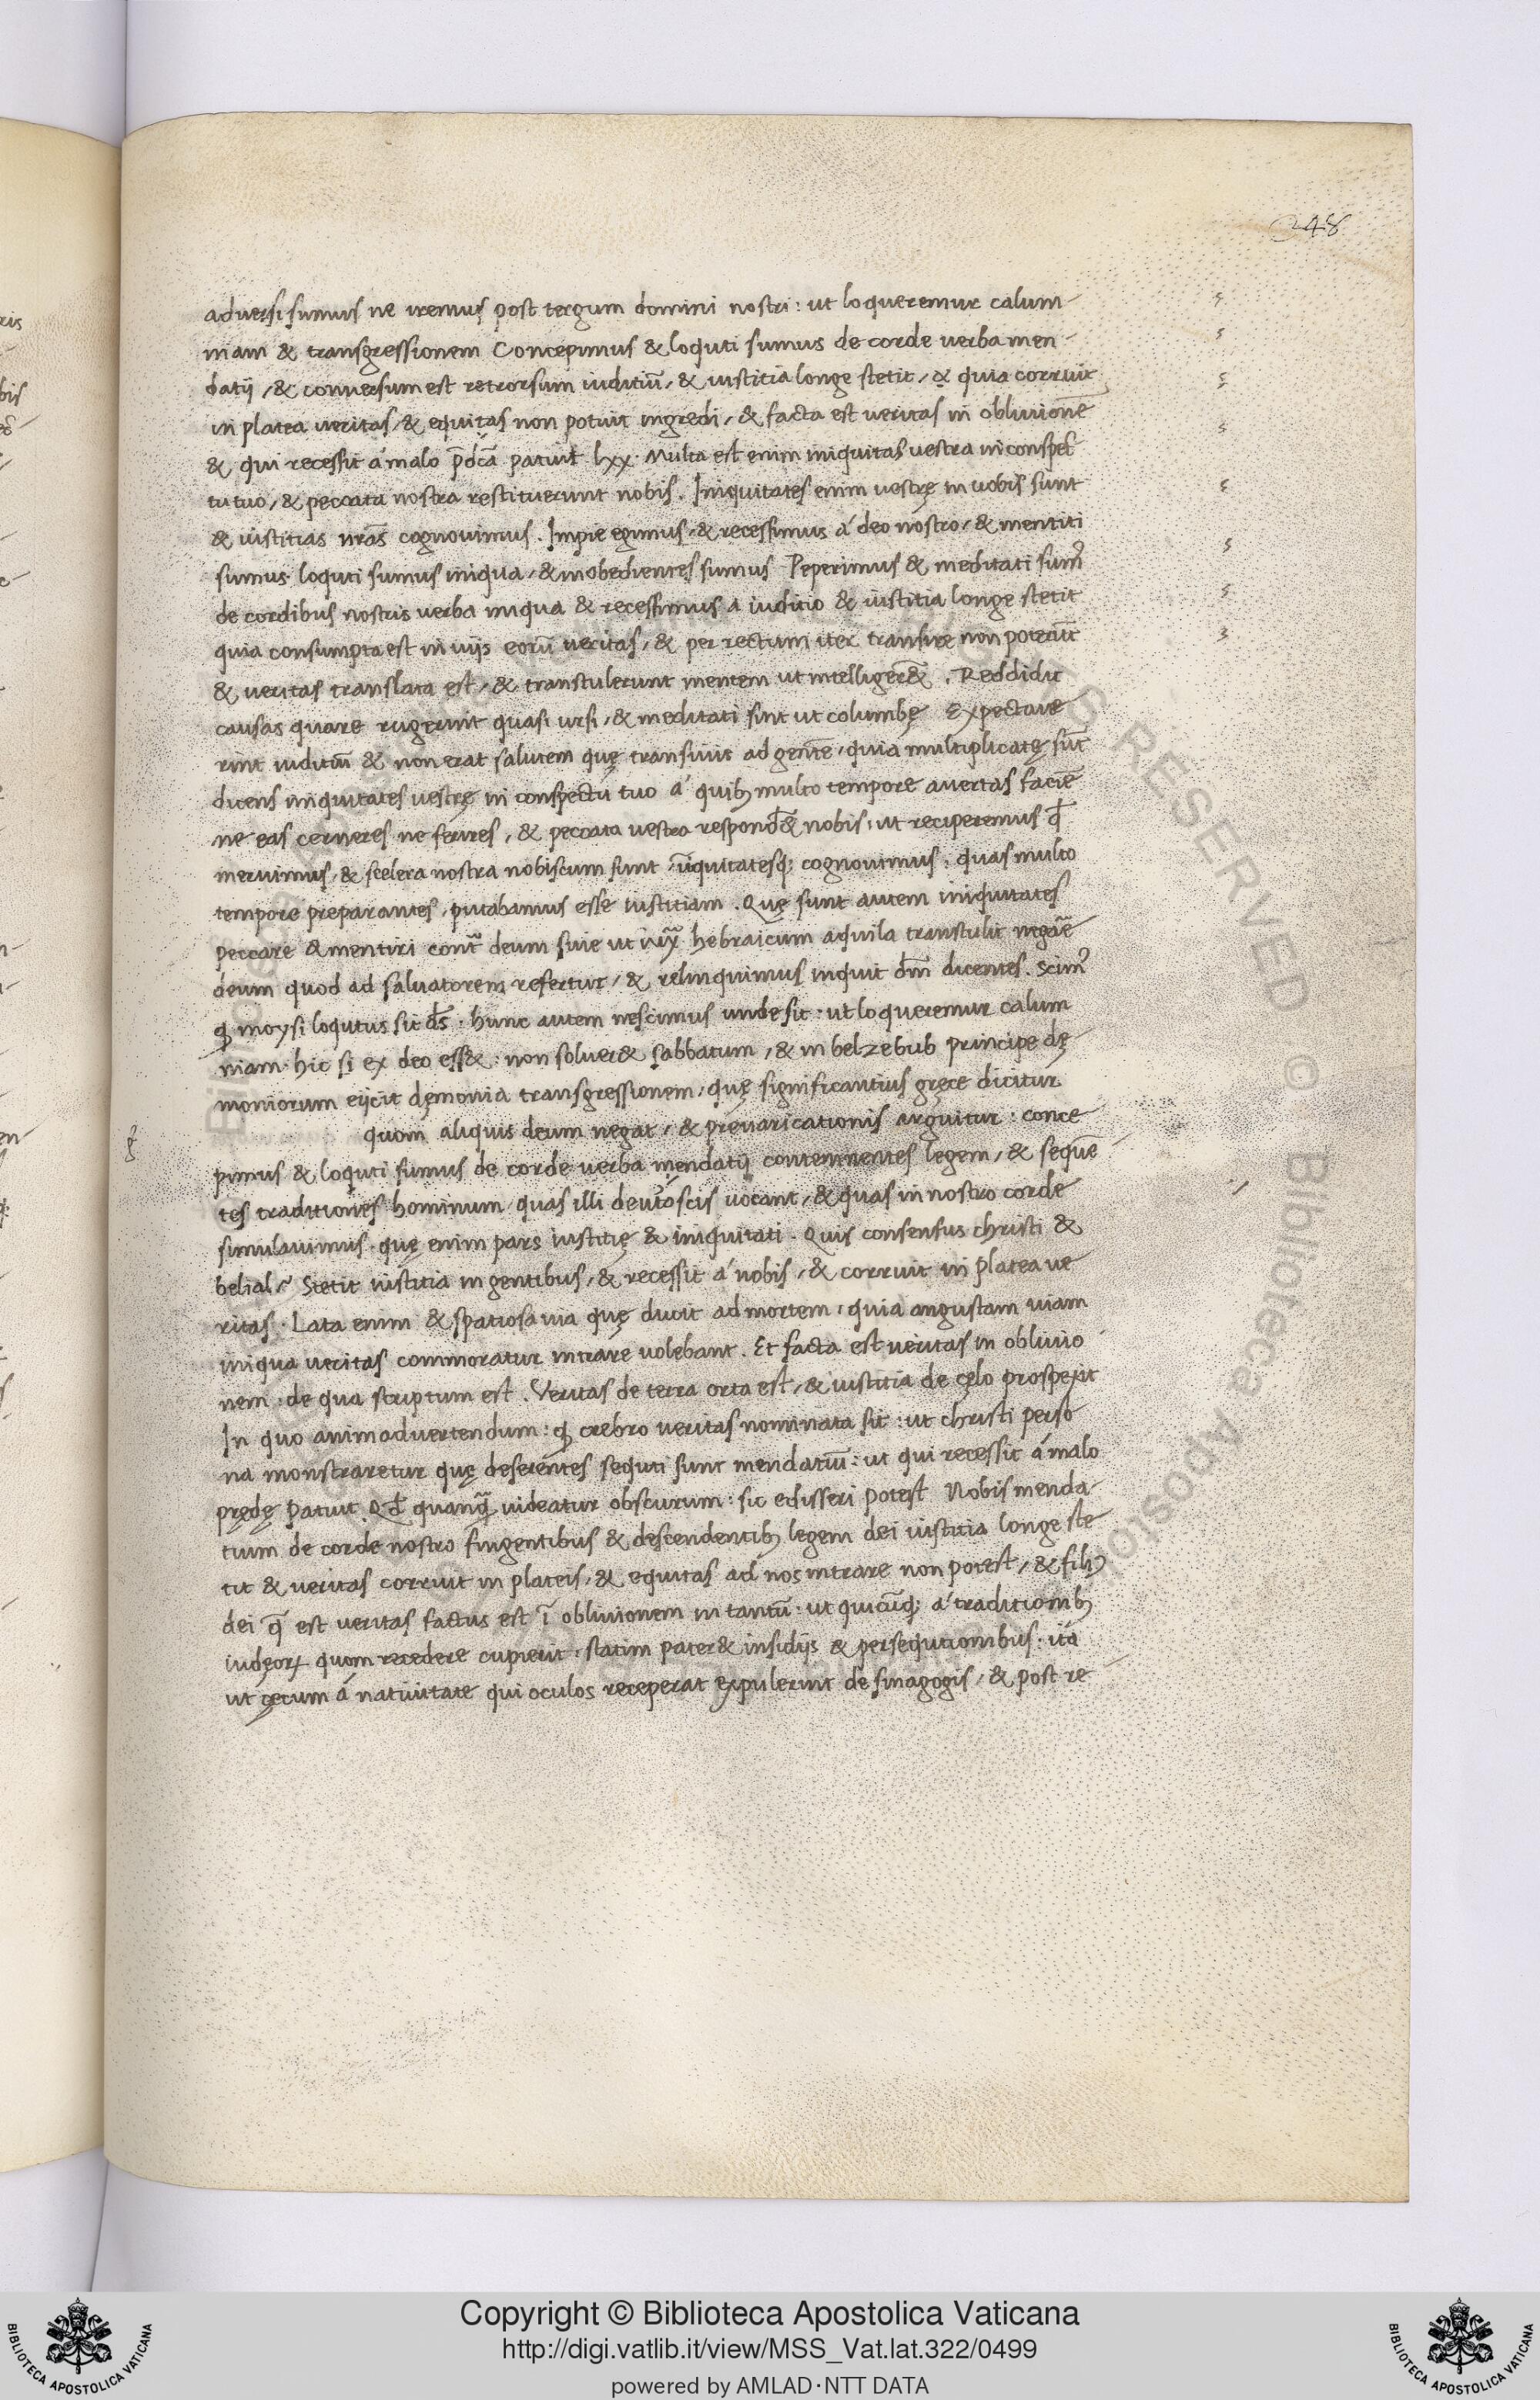 248
aduersi sumus ne iremus post tergum domini nostri : ut loqueremur calum
niam & transgressionem Concepimus & loquti sumus de corde uerba men
datij / & conuersum est retrorsum iuditiū / & iustitia longe stetit / & quia corruit
in platea ueritas / & equitas non potuit ingredi / & facta est ueritas in obliuionē
& qui recessit á malo p̄dcā patuit lxx . Multa est enim iniquitas uestra in conspec
tu tuo / & peccata nostra restituerunt nobis . Iniquitates enim uestrę in uobis sunt
& iustitias nr̄as cognouimus . Impie egimus / & recessimus á deo nostro / & mentiti
sumus . loquti sumus iniqua / & inobedientes sumus Peperimus & meditati sum⁹
de cordibus nostris uerba iniqua & recessimus a iuditio & iustitia longe stetit
quia consumpta est in uijs eorū ueritas / & per rectum iter transire non poterūt
& ueritas translata est / & transtulerunt mentem ut intelliger& . Reddidit
causas quare rugerint quasi ursi / & meditati sint ut columbę Expectaue
rint iuditiū & non erat salutem quę transiuit ad gentē / quia multiplicatę sūt
dicens iniquitates uestrę in conspectu tuo á quib; multo tempore auertas faciē
ne eas cerneres ne ferires / & peccata uestra respond& nobis : ut reciperemus qd
meruimus / & scelera nostra nobiscum sunt iniquitatesq; cognouimus : quas multo
tempore preparantes / putabamus esse iustitiam . Quę sunt autem iniquitates
peccare & mentiri contra deum siue ut iuxta hebraicum aquila transtulit negare
deum quod ad saluatorem refertur / & relinquimus inquit dm̄ dicentes . Scim⁹
q moysi loqutus sit ds̄ . hunc autem nescimus unde sit : ut loqueremur calum
niam . hic si ex deo ess& : non soluer& sabbatum / & in belzebub principe dę
moniorum eijcit dęmonia transgressionem / quę significantius gręce dicitur
quom aliquis deum negat / & preuaricationis arguitur : conce
pimus & loquti sumus de corde uerba mendatij contemnentes legem / & sequē
tes traditiones hominum quas illi uocant / & quas in nostro corde
simulauimus . quę enim pars iustitię & iniquitati . Quis consensus christi &
belial ? Stetit iustitia in gentibus / & recessit á nobis / & corruit in platea ue
ritas . Lata enim & spatiosa uia quę ducit ad mortem / quia angustam uiam
in qua ueritas commoratur intrare uolebant . Et facta est ueritas in obliuio
nem : de qua scriptum est . Veritas de terra orta est / & iustitia de cęlo prospexit
In quo animaduertendum : q crebro ueritas nominata sit : ut christi perso
na monstraretur quę deserentes sequti sunt mendatiū : ut qui recessit á malo
pręde patuit . Qd quanq̄ uideatur obscurum : sic edisseri potest Nobis menda
tium de corde nostro fingentibus & descendentib; legem dei iustitia longe ste
tit & ueritas corruit in plateis / & equitas ad nos intrare non potest / & filiꝰ
dei q̄ est ueritas factus est ī obliuionem in tantū : ut quicūq; á traditionib;
iudęorꝝ quom recedere cupierit : statim pater& insidijs & persequtionibus : ita
ut cęcum á natiuitate qui oculos receperat expulerint de sinagogis / & post re
Copyright © Biblioteca Apostolica Vaticana
http://digi.vatlib.it/view/MSS_Vat.lat.322/0499
powered by AMLAD·NTT DATA